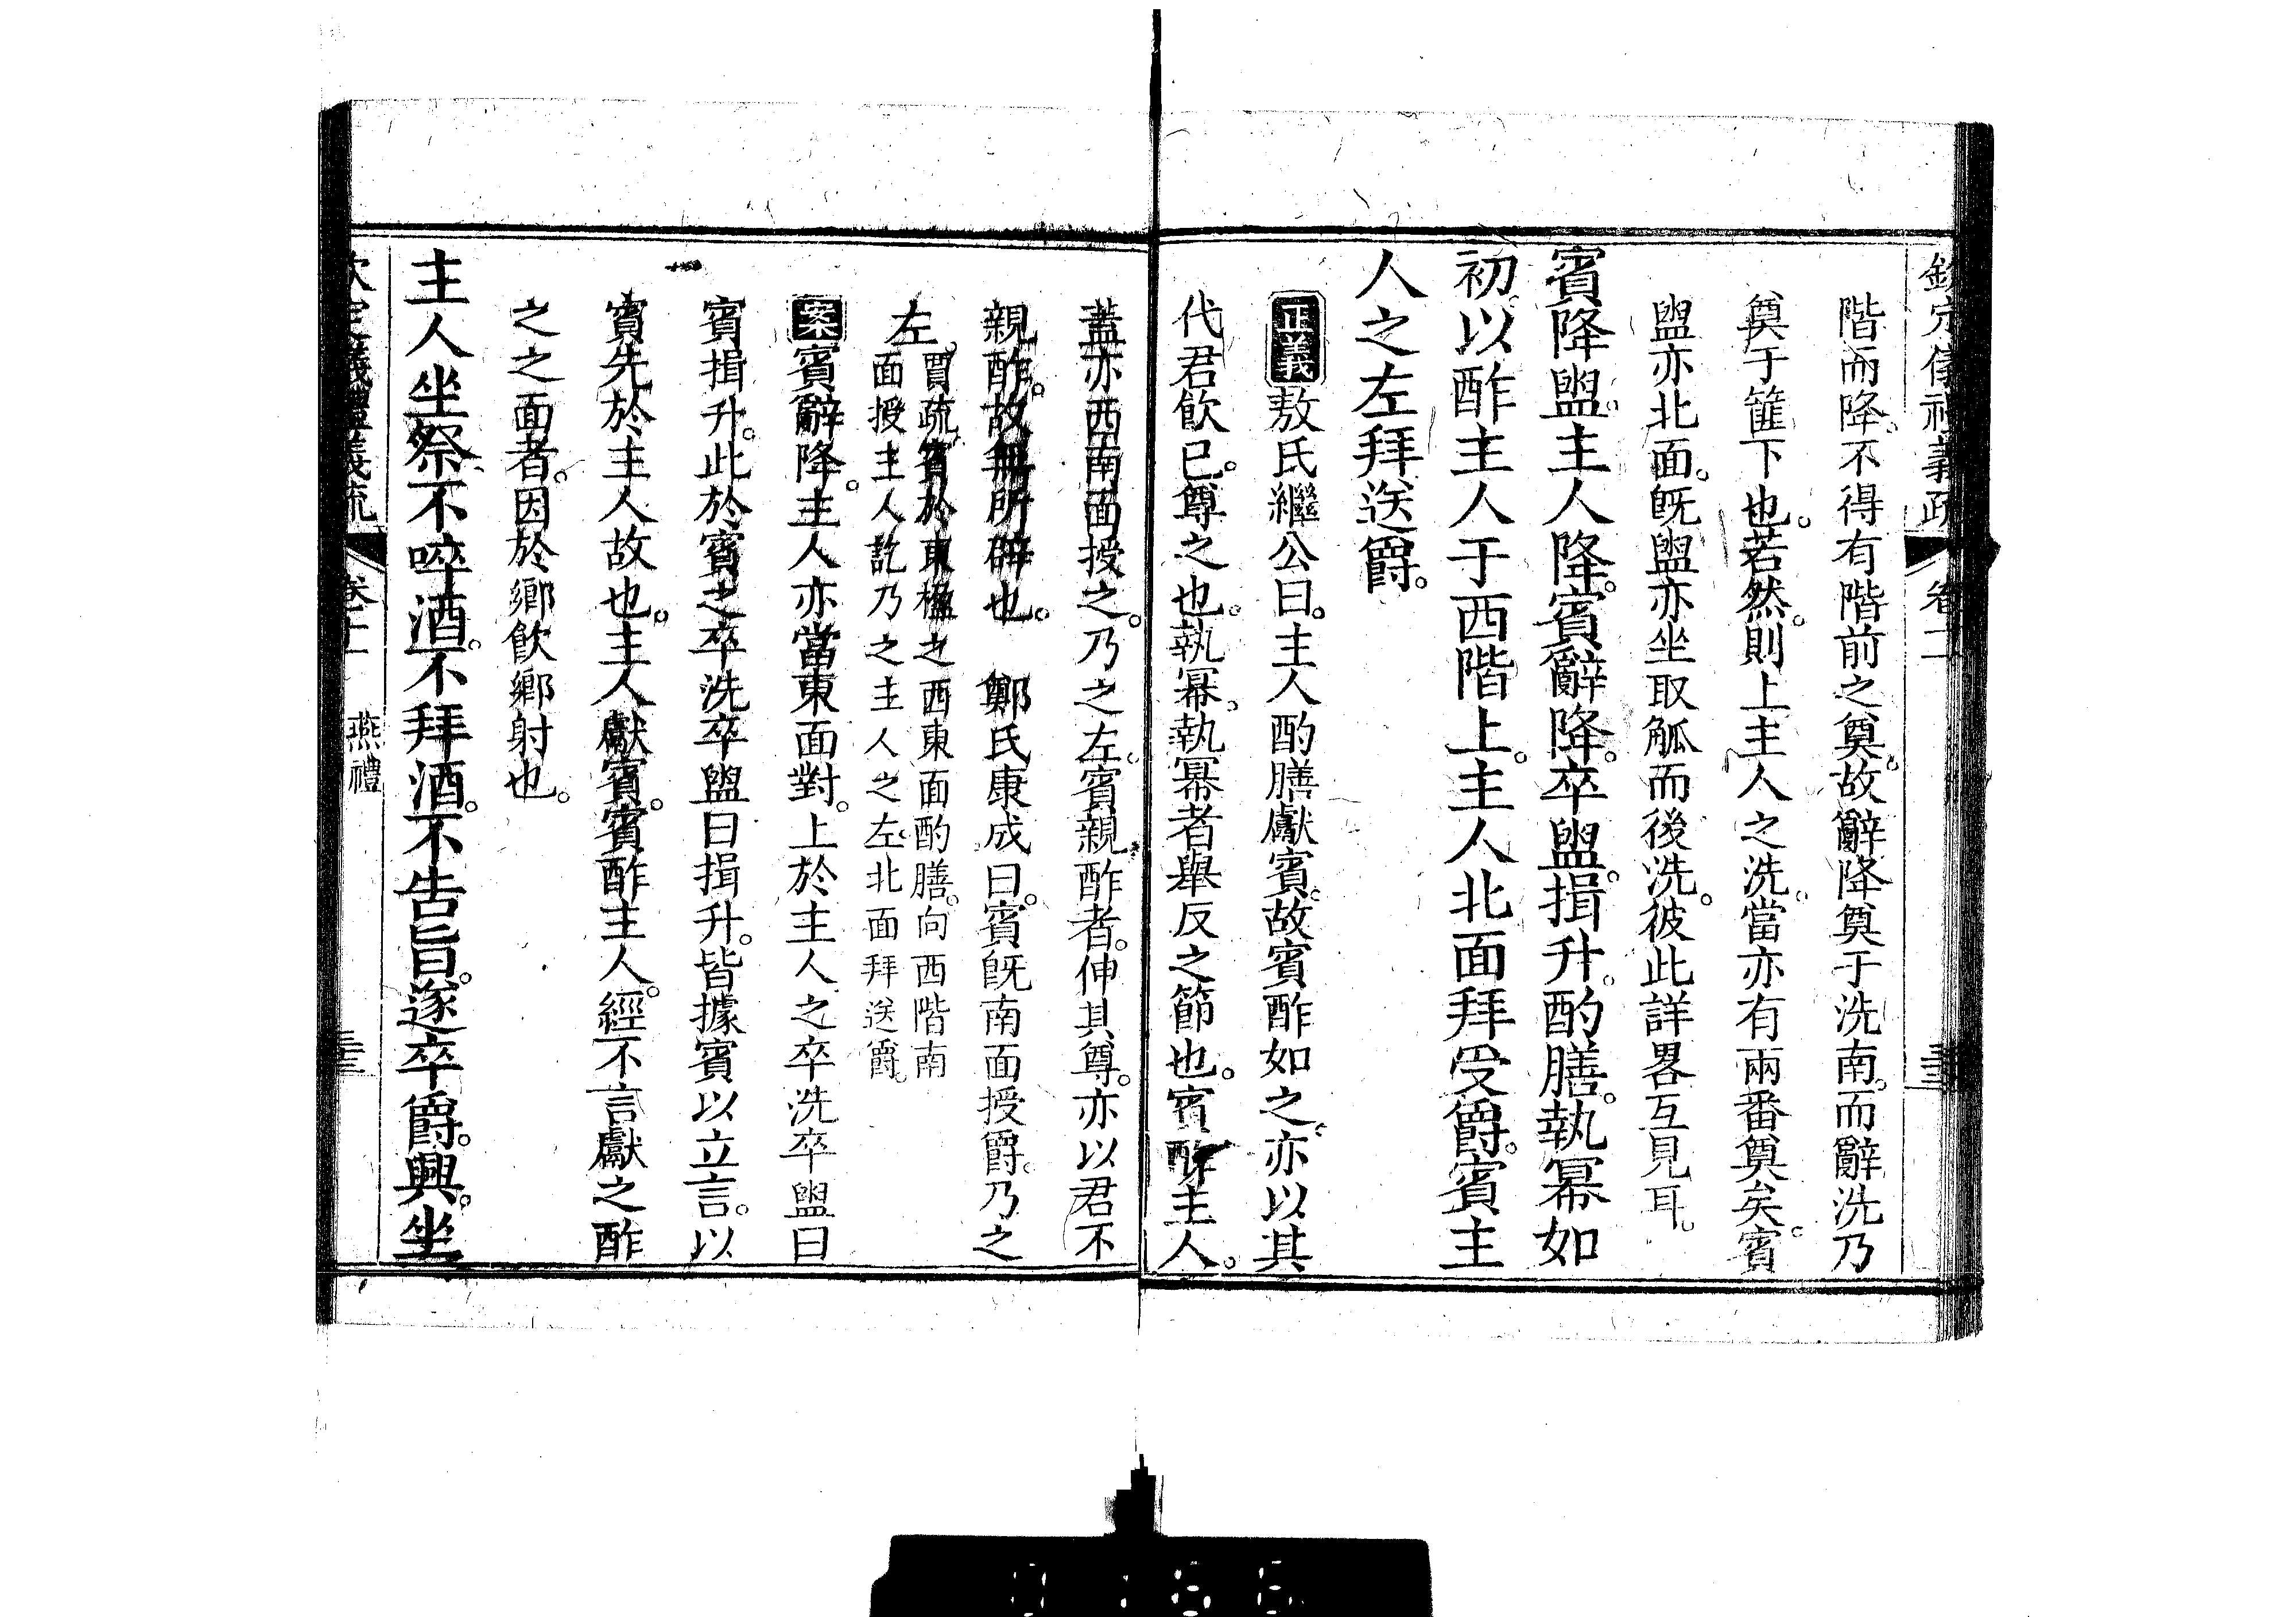 欽定儀禮義疏 卷十二
階而降。不得有階前之奠。故辭降奠于洗南。而辭洗乃
奠于篚下也。若然。則上主人之洗。當亦有兩番奠矣。賓
盥亦北面。旣盥亦坐取觚而後洗。彼此詳畧互見耳。
賓降盥。主人降。賓辭降。卒盥。揖升。酌膳。執冪如
初。以酢主人于西階上。主人北面拜受爵。賓主
人之左拜送爵。
正義敖氏繼公曰。主人酌膳獻賓。故賓酢如之。亦以其
代君飮已。尊之也。執冪。執冪者舉反之節也。賓酢主人。
蓋亦西南面授之。乃之左。賓親酢者。伸其尊。亦以君不
親酢。故無所辟也。 鄭氏康成曰。賓旣南面授爵。乃之
左。
賈疏。賓於東楹之西東面酌膳。向西階南
面授主人訖乃之主人之左。北面拜送爵。
案賓辭降。主人亦當東面對。上於主人之卒洗卒盥曰
賓揖升。此於賓之卒洗卒盥曰揖升。皆據賓以立言。以
賓先於主人故也。主人獻賓。賓酢主人。經不言獻之酢
之之面者。因於鄉飮鄉射也。
主人坐祭。不啐酒。不拜酒。不告旨。遂卒爵。興。坐
欽定儀禮義疏 卷十二 燕禮
0166